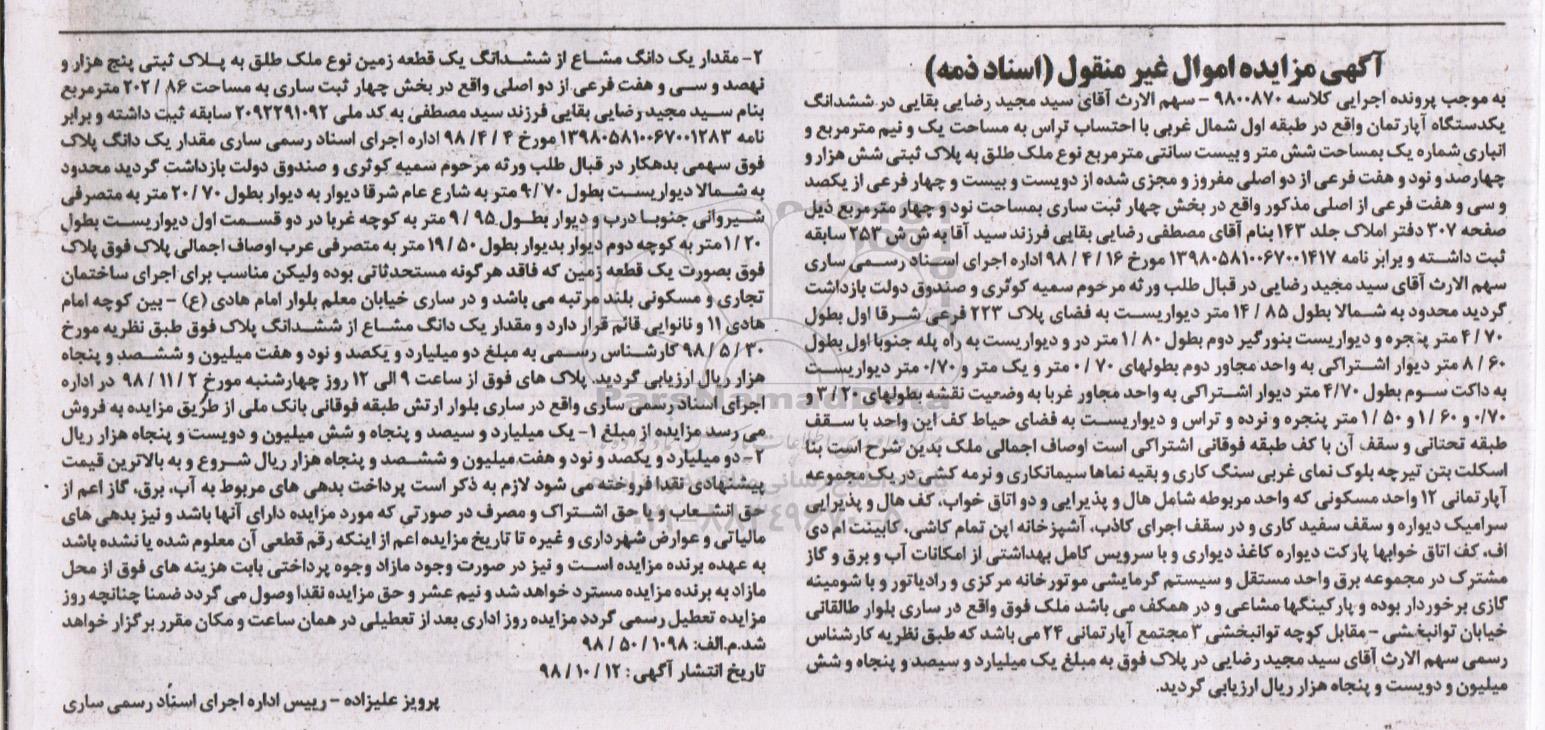 آگهی مزایده اموال غیر منقول (اسناد ذمه)
به موجب پرونده اجرایی کلاسه ۹۸۰۰۸۷۰ - سهم الارث آقای سید مجید رضایی بقایی در ششدانگ
یکدستگاه آپارتمان واقع در طبقه اول شمال غربی با احتساب تراس به مساحت یک و نیم مترمربع و
انباری شماره یک بمساحت شش متر و بیست سانتی مترمربع نوع ملک طلق به پلاک ثبتی شش هزار و
چهارصد و نود و هفت فرعی از دو اصلی مفروز و مجزی شده از دویست و بیست و چهار فرعی از یکصد
و سی و هفت فرعی از اصلی مذکور واقع در بخش چهار ثبت ساری بمساحت نود و چهار مترمربع ذیل
صفحه ۳۰۷ دفتر املاک جلد ۱۴۳ بنام آقای مصطفی رضایی بقایی فرزند سید آقا به ش ش ۲۵۳ سابقه
ثبت داشته و برابر نامه ۱۳۹۸۰۵۸۱۰۰۶۷۰۰۱۴۱۷ مورخ ۱۶ / ۴ / ۹۸ اداره اجرای اسناد رسمی ساری
سهم الارث آقای سید مجید رضایی در قبال طلب ورثه مرحوم سمیه کوثری و صندوق دولت بازداشت
گردید محدود به شمالا بطول ۸۵ / ۱۴ متر دیواریست به فضای پلاک ۲۲۳ فرعی شرقا اول بطول
۴ / ۷۰ متر پنجره و دیواریست بنورگیر دوم بطول ۸۰ / ۱ متر در و دیواریست به راه پله جنوبا اول بطول
۶۰ / ۸ متر دیوار اشتراکی به واحد مجاور دوم بطولهای ۷۰ / ۰ متر و یک متر و ۰/۷۰ متر دیواریست
به داکت سوم بطول ۴/۷۰ متر دیوار اشتراکی به واحد مجاور غربا به وضعیت نقشه بطولهای ۲۰ / ۳ و
۰/۷۰ و ۶۰ / ۱ و ۵۰ / ۱ متر پنجره و نرده و تراس و دیواریست به فضای حیاط کف این واحد با سقف
طبقه تحتانی و سقف آن با کف طبقه فوقانی اشتراکی است اوصاف اجمالی ملک بدین شرح است بنا
اسکلت بتن تیرچه بلوک نمای غربی سنگ کاری و بقیه نماها سیمانکاری و نرمه کشی در یک مجموعه
آپارتمانی ۱۲ واحد مسکونی که واحد مربوطه شامل هال و پذیرایی و دو اتاق خواب، کف هال و پذیرایی
سرامیک دیواره و سقف سفید کاری و در سقف اجرای کاذب، آشپزخانه اپن تمام کاشی، کابینت ام دی
اف، کف اتاق خوابها پارکت دیواره کاغذ دیواری و با سرویس کامل بهداشتی از امکانات آب و برق و گاز
مشترک در مجموعه برق واحد مستقل و سیستم گرمایشی موتورخانه مرکزی و رادیاتور و با شومینه
گازی برخوردار بوده و پارکینگها مشاعی و در همکف می باشد ملک فوق واقع در ساری بلوار طالقانی
خیابان توانبخشی - مقابل کوچه توانبخشی ۳ مجتمع آپارتمانی ۲۴ می باشد که طبق نظریه کارشناس
رسمی سهم الارث آقای سید مجید رضایی در پلاک فوق به مبلغ یک میلیارد و سیصد و پنجاه و شش
میلیون و دویست و پنجاه هزار ریال ارزیابی گردید.
۲- مقدار یک دانگ مشاع از ششدانگ یک قطعه زمین نوع ملک طلق به پلاک ثبتی پنج هزار و
نهصد و سی و هفت فرعی از دو اصلی واقع در بخش چهار ثبت ساری به مساحت ۸۶ / ۲۰۲ مترمربع
بنام سید مجید رضایی بقایی فرزند سید مصطفی به کد ملی ۲۰۹۲۲۹۱۰۹۲ سابقه ثبت داشته و برابر
نامه ۱۳۹۸۰۵۸۱۰۰۶۷۰۰۱۲۸۳ مورخ ۴ / ۴ / ۹۸ اداره اجرای اسناد رسمی ساری مقدار یک دانگ پلاک
فوق سهمی بدهکار در قبال طلب ورثه مرحوم سمیه کوثری و صندوق دولت بازداشت گردید محدود
به شمالا دیواریست بطول ۹/۷۰ متر به شارع عام شرقا دیوار به دیوار بطول ۷۰ / ۲۰ متر به متصرفی
شیروانی جنوبا درب و دیوار بطول ۹۵ / ۹ متر به کوچه غربا در دو قسمت اول دیواریست بطول
۲۰ / ۱ متر به کوچه دوم دیوار بدیوار بطول ۵۰ / ۱۹ متر به متصرفی عرب اوصاف اجمالی پلاک فوق پلاک
فوق بصورت یک قطعه زمین که فاقد هرگونه مستحدثاتی بوده ولیکن مناسب برای اجرای ساختمان
تجاری و مسکونی بلند مرتبه می باشد و در ساری خیابان معلم بلوار امام هادی (ع) - بین کوچه امام
هادی ۱۱ و نانوایی قائم قرار دارد و مقدار یک دانگ مشاع از ششدانگ پلاک فوق طبق نظریه مورخ
۳۰ / ۵ / ۹۸ کارشناس رسمی به مبلغ دو میلیارد و یکصد و نود و هفت میلیون و ششصد و پنجاه
هزار ریال ارزیابی گردید. پلاک های فوق از ساعت ۹ الی ۱۲ روز چهارشنبه مورخ ۲ / ۱۱ / ۹۸ در اداره
اجرای اسناد رسمی ساری واقع در ساری بلوار ارتش طبقه فوقانی بانک ملی از طریق مزایده به فروش
می رسد مزایده از مبلغ ۱- یک میلیارد و سیصد و پنجاه و شش میلیون و دویست و پنجاه هزار ریال
۲- دو میلیارد و یکصد و نود و هفت میلیون و ششصد و پنجاه هزار ریال شروع و به بالاترین قیمت
پیشنهادی نقدا فروخته می شود لازم به ذکر است پرداخت بدهی های مربوط به آب، برق، گاز اعم از
حق انشعاب و یا حق اشتراک و مصرف در صورتی که مورد مزایده دارای آنها باشد و نیز بدهی های
مالیاتی و عوارض شهرداری و غیره تا تاریخ مزایده اعم از اینکه رقم قطعی آن معلوم شده یا نشده باشد
به عهده برنده مزایده است و نیز در صورت وجود مازاد وجوه پرداختی بابت هزینه های فوق از محل
مازاد به برنده مزایده مسترد خواهد شد و نیم عشر و حق مزایده نقدا وصول می گردد ضمنا چنانچه روز
مزایده تعطیل رسمی گردد مزایده روز اداری بعد از تعطیلی در همان ساعت و مکان مقرر برگزار خواهد
شد.م.الف: ۱۰۹۸ / ۵۰ / ۹۸
تاریخ انتشار آگهی : ۱۲ / ۱۰ / ۹۸
پرویز علیزاده - رییس اداره اجرای اسناد رسمی ساری
ParsNamadData